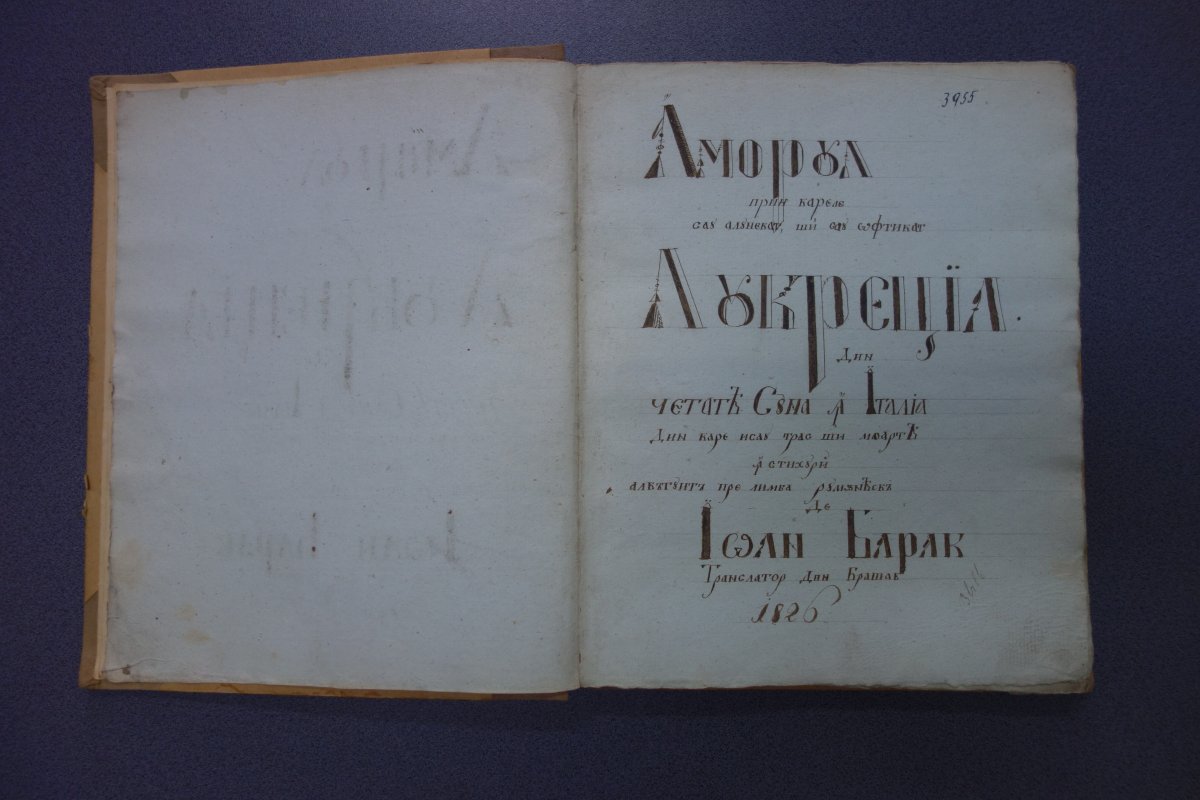 3955
Аморул
прин кареле
сау алунекат, ши сау ѡфтикат
Лукреція.
Дин
четатѣ Сѹна ꙟ Італіа
Дин каре исау трас ши моартѣ
ꙟ стихури
алкътуитъ пре лимба румѫнѣскъ
Де
Іѡан Барак
Транслатор дин Брашѡв
1826